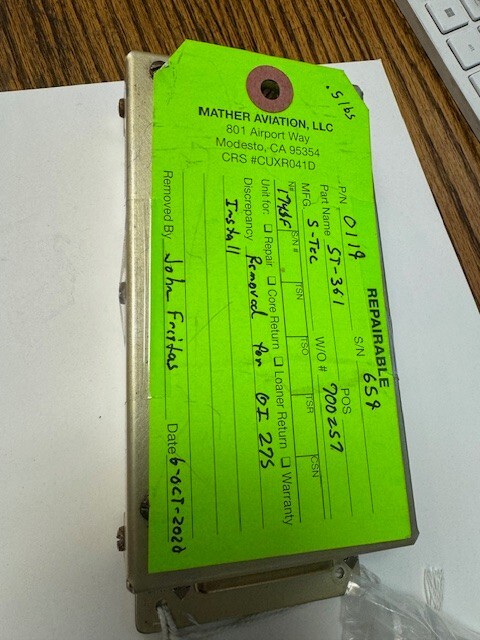 .5 lbs
MATHER AVIATION, LLC
801 Airport Way
Modesto, CA 95354
CRS #CUXR041D
REPAIRABLE
P/N 0119 S/N 659
Part Name ST-361 POS
MFG. S-Tec W/O # 700257
N# 1745F S/N # TSN TSO TSR CSN
Unit for: Repair Core Return Loaner Return Warranty
Discrepancy Removed for GI 275
Install
Removed By John Freitas Date 6-OCT-2020